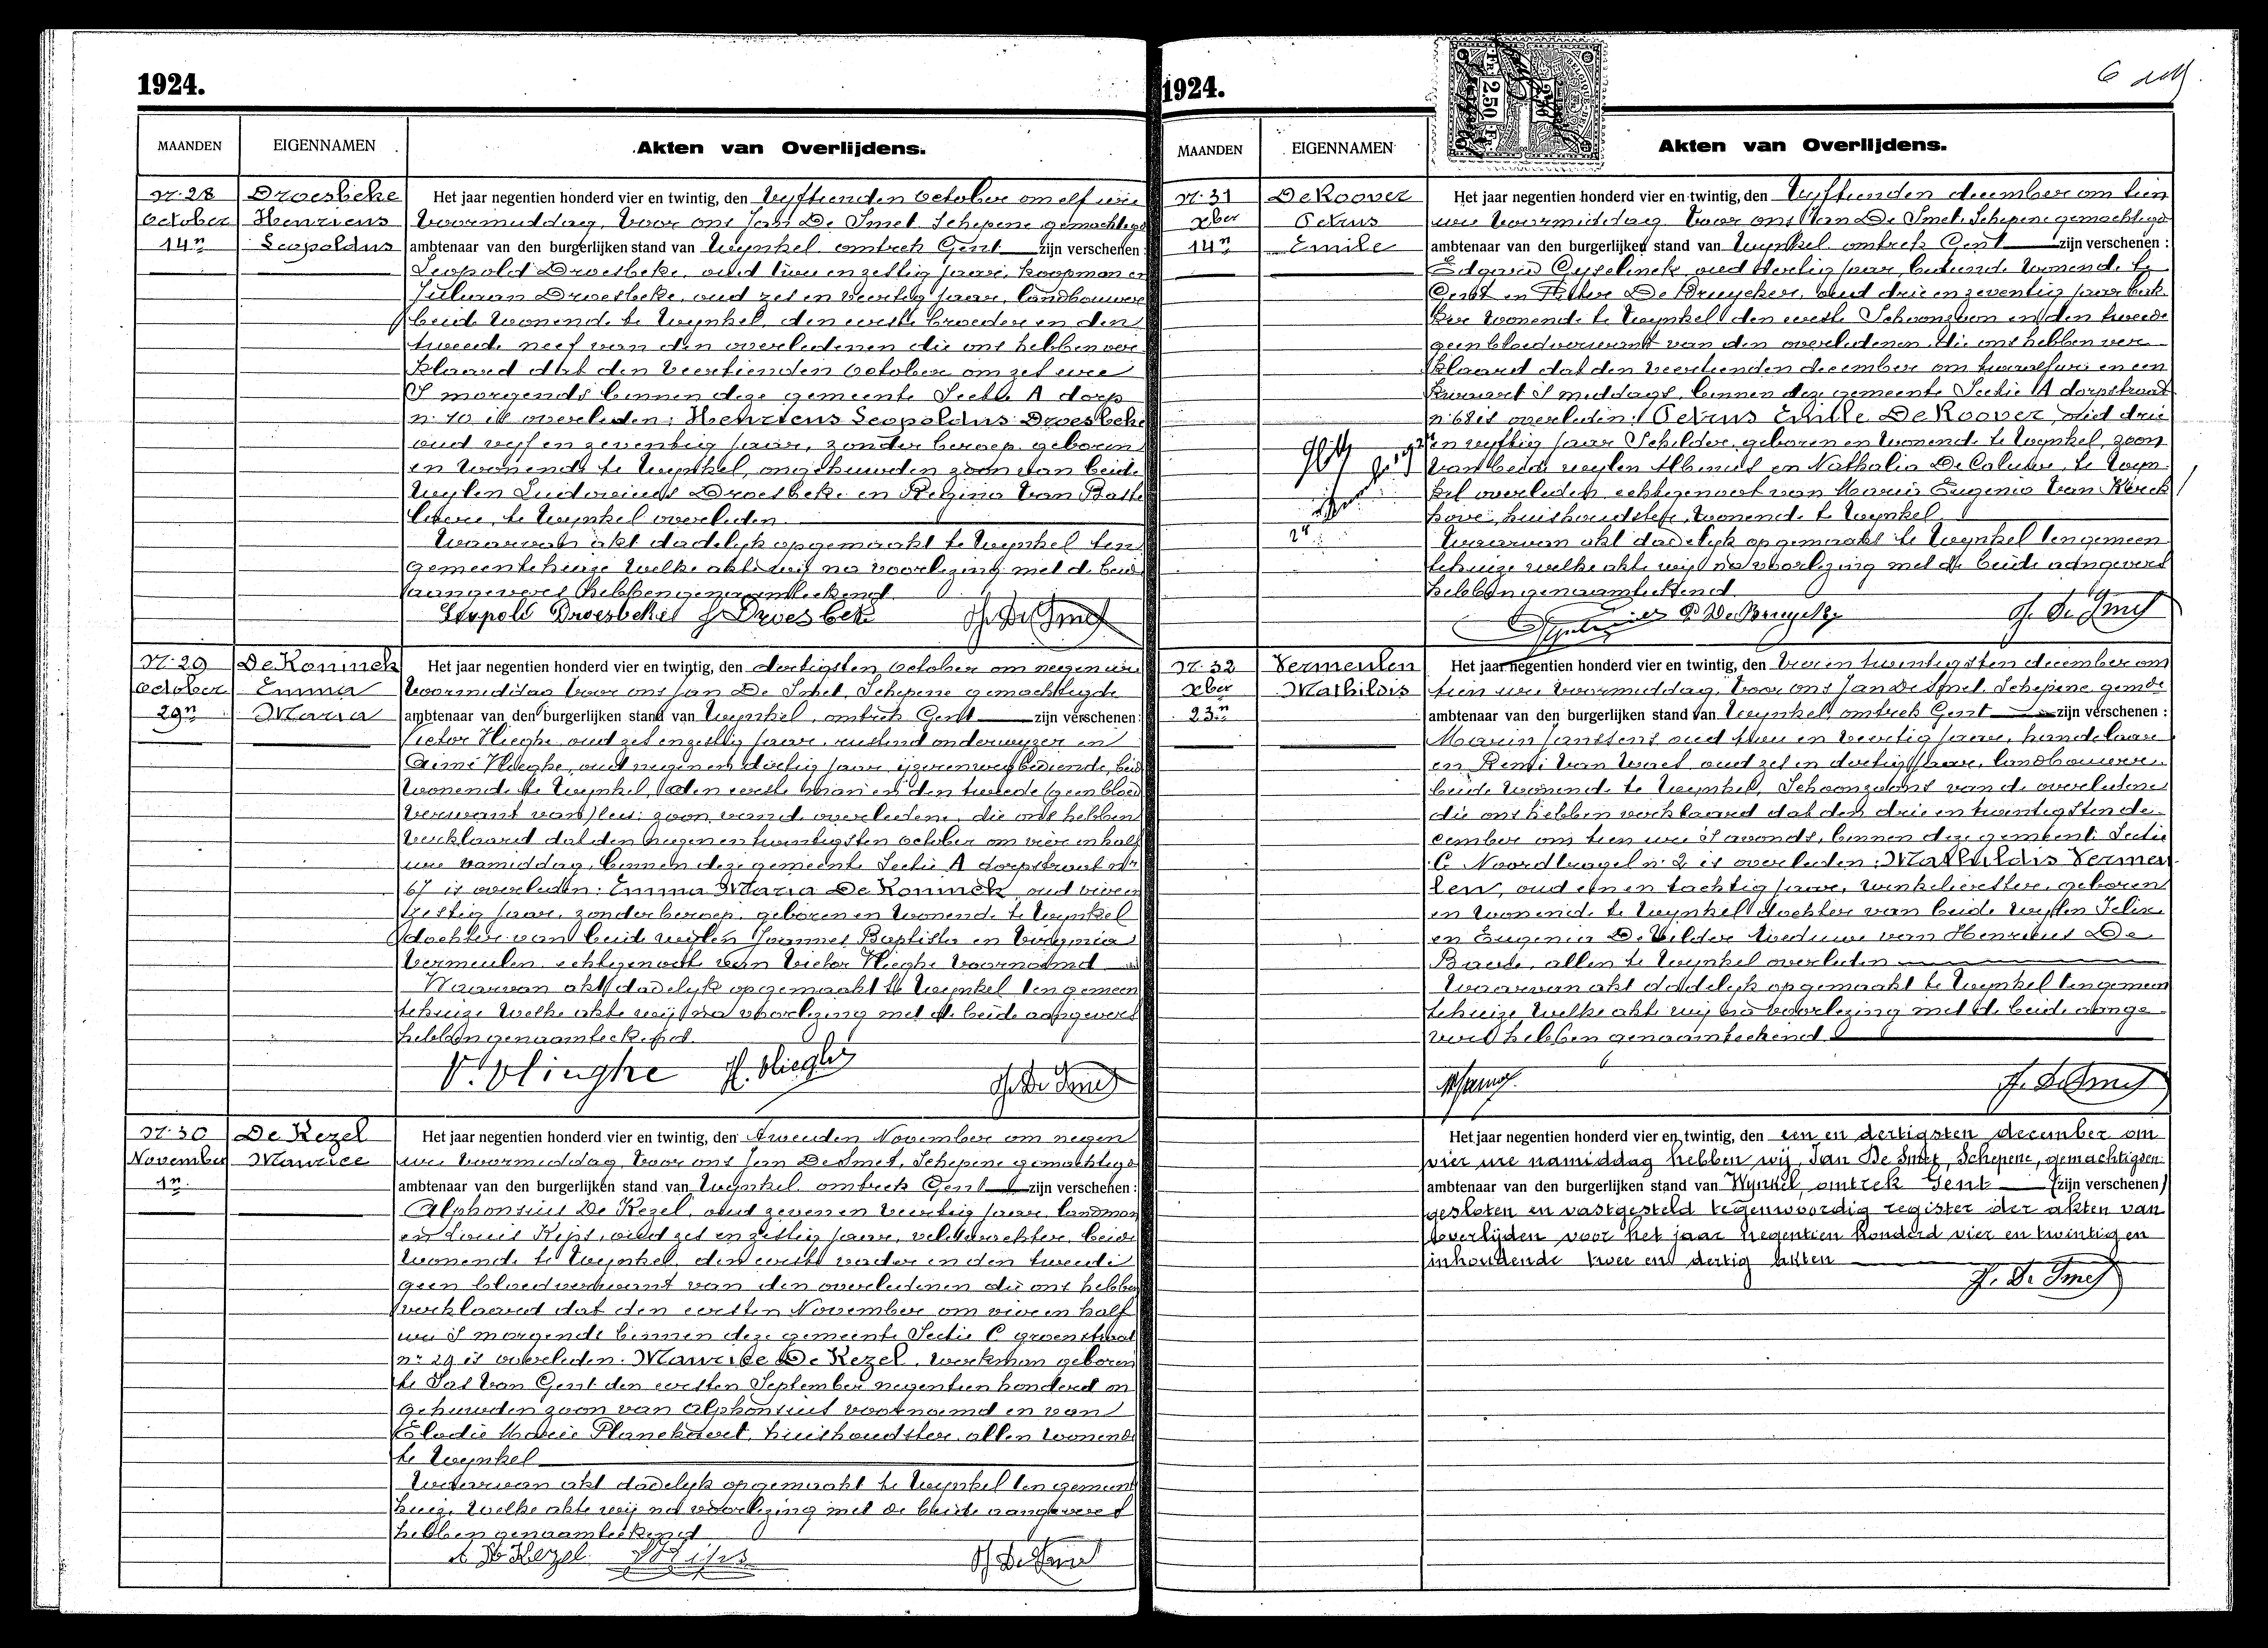 1924.
MAANDEN
EIGENNAMEN
Akten van Overlijdens.
N. 28
October
14n
Droesbeke
Henricus
Leopoldus
Het jaar negentien honderd vier en twintig, den Vyftienden October om elf ure
Voormiddag, Voor ons Jan De Smet Schepene gemachtigd
ambtenaar van den burgerlijken stand van Wynkel, omtrek Gent zijn verschenen:
Leopold Droesbeke, oud twee en zestig jaar, koopman en
Juliaan Droesbeke, oud zes en veertig jaar, landbouwer
beide wonende te Wynkel, den eerste broeder en den
tweede neef van den overledenen die ons hebben ver
klaard dat den Veertienden October om zes ure
S morgends binnen deze gemeente Sectie A dorp
n. 10 is overleden: Henricus Leopoldus Droesbeke
oud vyf en zeventig jaar, zonder beroep, geboren
en wonende te Wynkel, ongehuwden zoon van beide
wylen Ludovicus Droesbeke en Regina Van Batte
te Wynkel overleden
Waarvan akt dadelyk opgemaakt te Wynkel ten
gemeentehuize welke akte wij na voorlezing met de beide
aangevers hebben genaamteekend
Leopold Droesbeke J Droesbeke J. De Smet
N. 29
October
29n
De Koninck
Emma
Maria
Het jaar negentien honderd vier en twintig, den dertigsten October om negen ure
Voormiddag Voor ons Jan De Smet, Schepene gemachtigde
ambtenaar van den burgerlijken stand van Wynkel, omtrek Gent zijn verschenen:
Victor Vlieghe, oud zes en zestig jaar, rustend onderwyzer en
Aimé Vlieghe, oud negen en dertig jaar, ijzerenwegbediende, beide
wonende te Wynkel, den eerste man en den tweede (geen bloed
verwant van) lees: zoon van de overledene, die ons hebben
verklaard dat den negen en twintigsten October om vier en half
ure namiddag, binnen deze gemeente Sectie A dorpstraat nr
67 is overleden: Emma Maria De Koninck, oud vier en
zestig jaar, zonder beroep, geboren en wonende te Wynkel
dochter van beide wylen Joannes Baptista en Virginia
Vermeulen echtgenoote van Victor Vlieghe voornoemd
Waarvan akt dadelyk opgemaakt te Wynkel ten gemeen
tehuize welke akte wij na voorlezing met de beide aangevers
hebben genaamteekend
V. Vlieghe A. Vlieghe J. De Smet
N. 30
November
1n
De Kezel
Maurice
Het jaar negentien honderd vier en twintig, den Tweeden November om negen
ure Voormiddag Voor ons Jan De Smet, Schepene gemachtigd
ambtenaar van den burgerlijken stand van Wynkel omtrek Gent zijn verschenen:
Alphonsius De Kezel, oud zeven en veertig jaar, landman
en Louis oud zes en zestig jaar, veldwachter, beide
wonende te Wynkel, den eerste vader en den tweede
geen bloedverwant van den overledenen die ons hebben
verklaard dat den eersten November om vier en half
ure S morgends binnen deze gemeente Sectie C groenstraat
nr 29 is overleden: Maurice De Kezel, werkman geboren
te Sas van Gent den eersten September negentien honderd on
gehuwden zoon van Alphonsius voornoemd en van
Elodie Marie Planckaert, huishoudster, allen wonende
te Wynkel
Waarvan akt dadelyk opgemaakt te Wynkel ten gemeente
huize, welke akte wij na voorlezing met de beide aangevers
hebben genaamteekend
A De Kezel J. De Smet
1924.
2.50 Fr.
MAANDEN
EIGENNAMEN
Akten van Overlijdens.
N. 31
Xber
14n
De Koover
Petrus
Emile
Het jaar negentien honderd vier en twintig, den Vyftienden december om tien
ure Voormiddag Voor ons Jan De Smet, Schepene gemachtigd
ambtenaar van den burgerlijken stand van Wynkel omtrek Gent zijn verschenen:
Edgard Cyselinck oud dertig jaar, bediende wonende te
Gent en De Bruycker, oud drie en zeventig jaar
wonende te Wynkel den eerste Schoonzoon en den tweede
geen bloedverwant van den overledenen, die ons hebben ver
klaard dat den veertienden december om twaalf ure en een
kwaart S middags, binnen deze gemeente Sectie A dorpstraat
n. 68 is overleden: Petrus Emile De Koover, oud drie
en vyftig jaar Schilder, geboren en wonende te Wynkel, zoon
van beide wylen en Nathalia De Caluwe, te Wyn
kel overleden echtgenoot van Marie Eugenie Van Kerck
hove, huishoudster, wonende te Wynkel
Waarvan akt dadelyk opgemaakt te Wynkel ten gemeen
tehuize welke akte wij na voorlezing met de beide aangevers
hebben genaamteekend
De Bruycker J. De Smet
N. 32
Xber
23n
Vermeulen
Mathildis
Het jaar negentien honderd vier en twintig, den Vier en twintigsten december om
tien ure Voormiddag, Voor ons Jan De Smet, Schepene, gemde
ambtenaar van den burgerlijken stand van Wynkel omtrek Gent zijn verschenen:
Janssens oud twee en veertig jaar, handelaar
en René Van Waes oud zes en dertig jaar, landbouwer
beide wonende te Wynkel, Schoonzoons van de overledene
die ons hebben verklaard dat den drie en twintigsten de
cember om tien ure S avonds, binnen deze gemeente Sectie
C Noordtragel n. 2 is overleden: Mathildis Vermeu
len, oud een en tachtig jaar, winkelierster, geboren
en wonende te Wynkel dochter van beide wylen Felix
en Eugenia De Vilder Weduwe van Henricus De
Baets, allen te Wynkel overleden
Waarvan akt dadelyk opgemaakt te Wynkel ten gemeen
tehuize, welke akte wij na voorlezing met de beide aange
vers hebben genaamteekend
J. De Smet
Het jaar negentien honderd vier en twintig, den een en dertigsten december om
vier ure namiddag hebben wij, Jan De Smet, Schepene, gemachtigden
ambtenaar van den burgerlijken stand van Wynkel, omtrek Gent (zijn verschenen)
gesloten en vastgesteld tegenwoordig register der akten van
overlijden voor het jaar negentien honderd vier en twintig en
inhoudende twee en dertig akten
J. De Smet